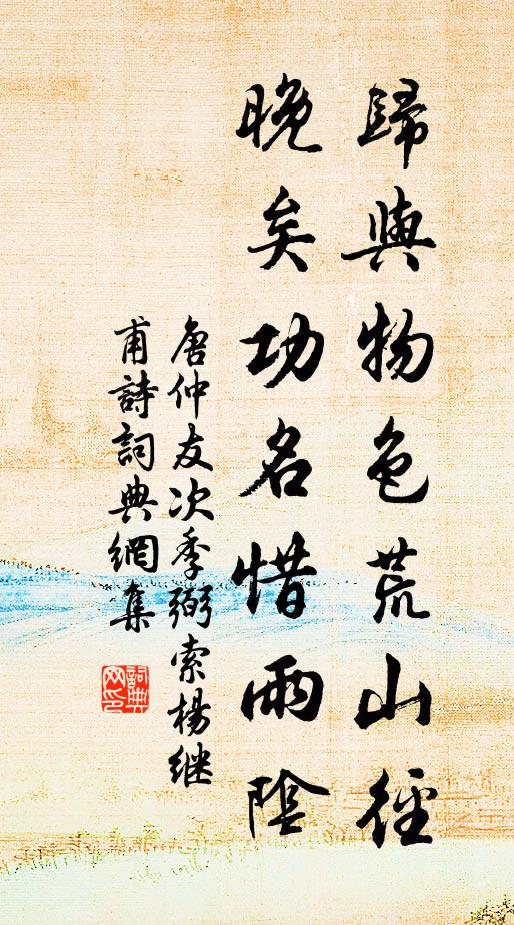 歸與物色荒山徑
晚矣功名惜雨陰
唐仲友次季弼索楊继
甫詩詞典網集
詞典网印